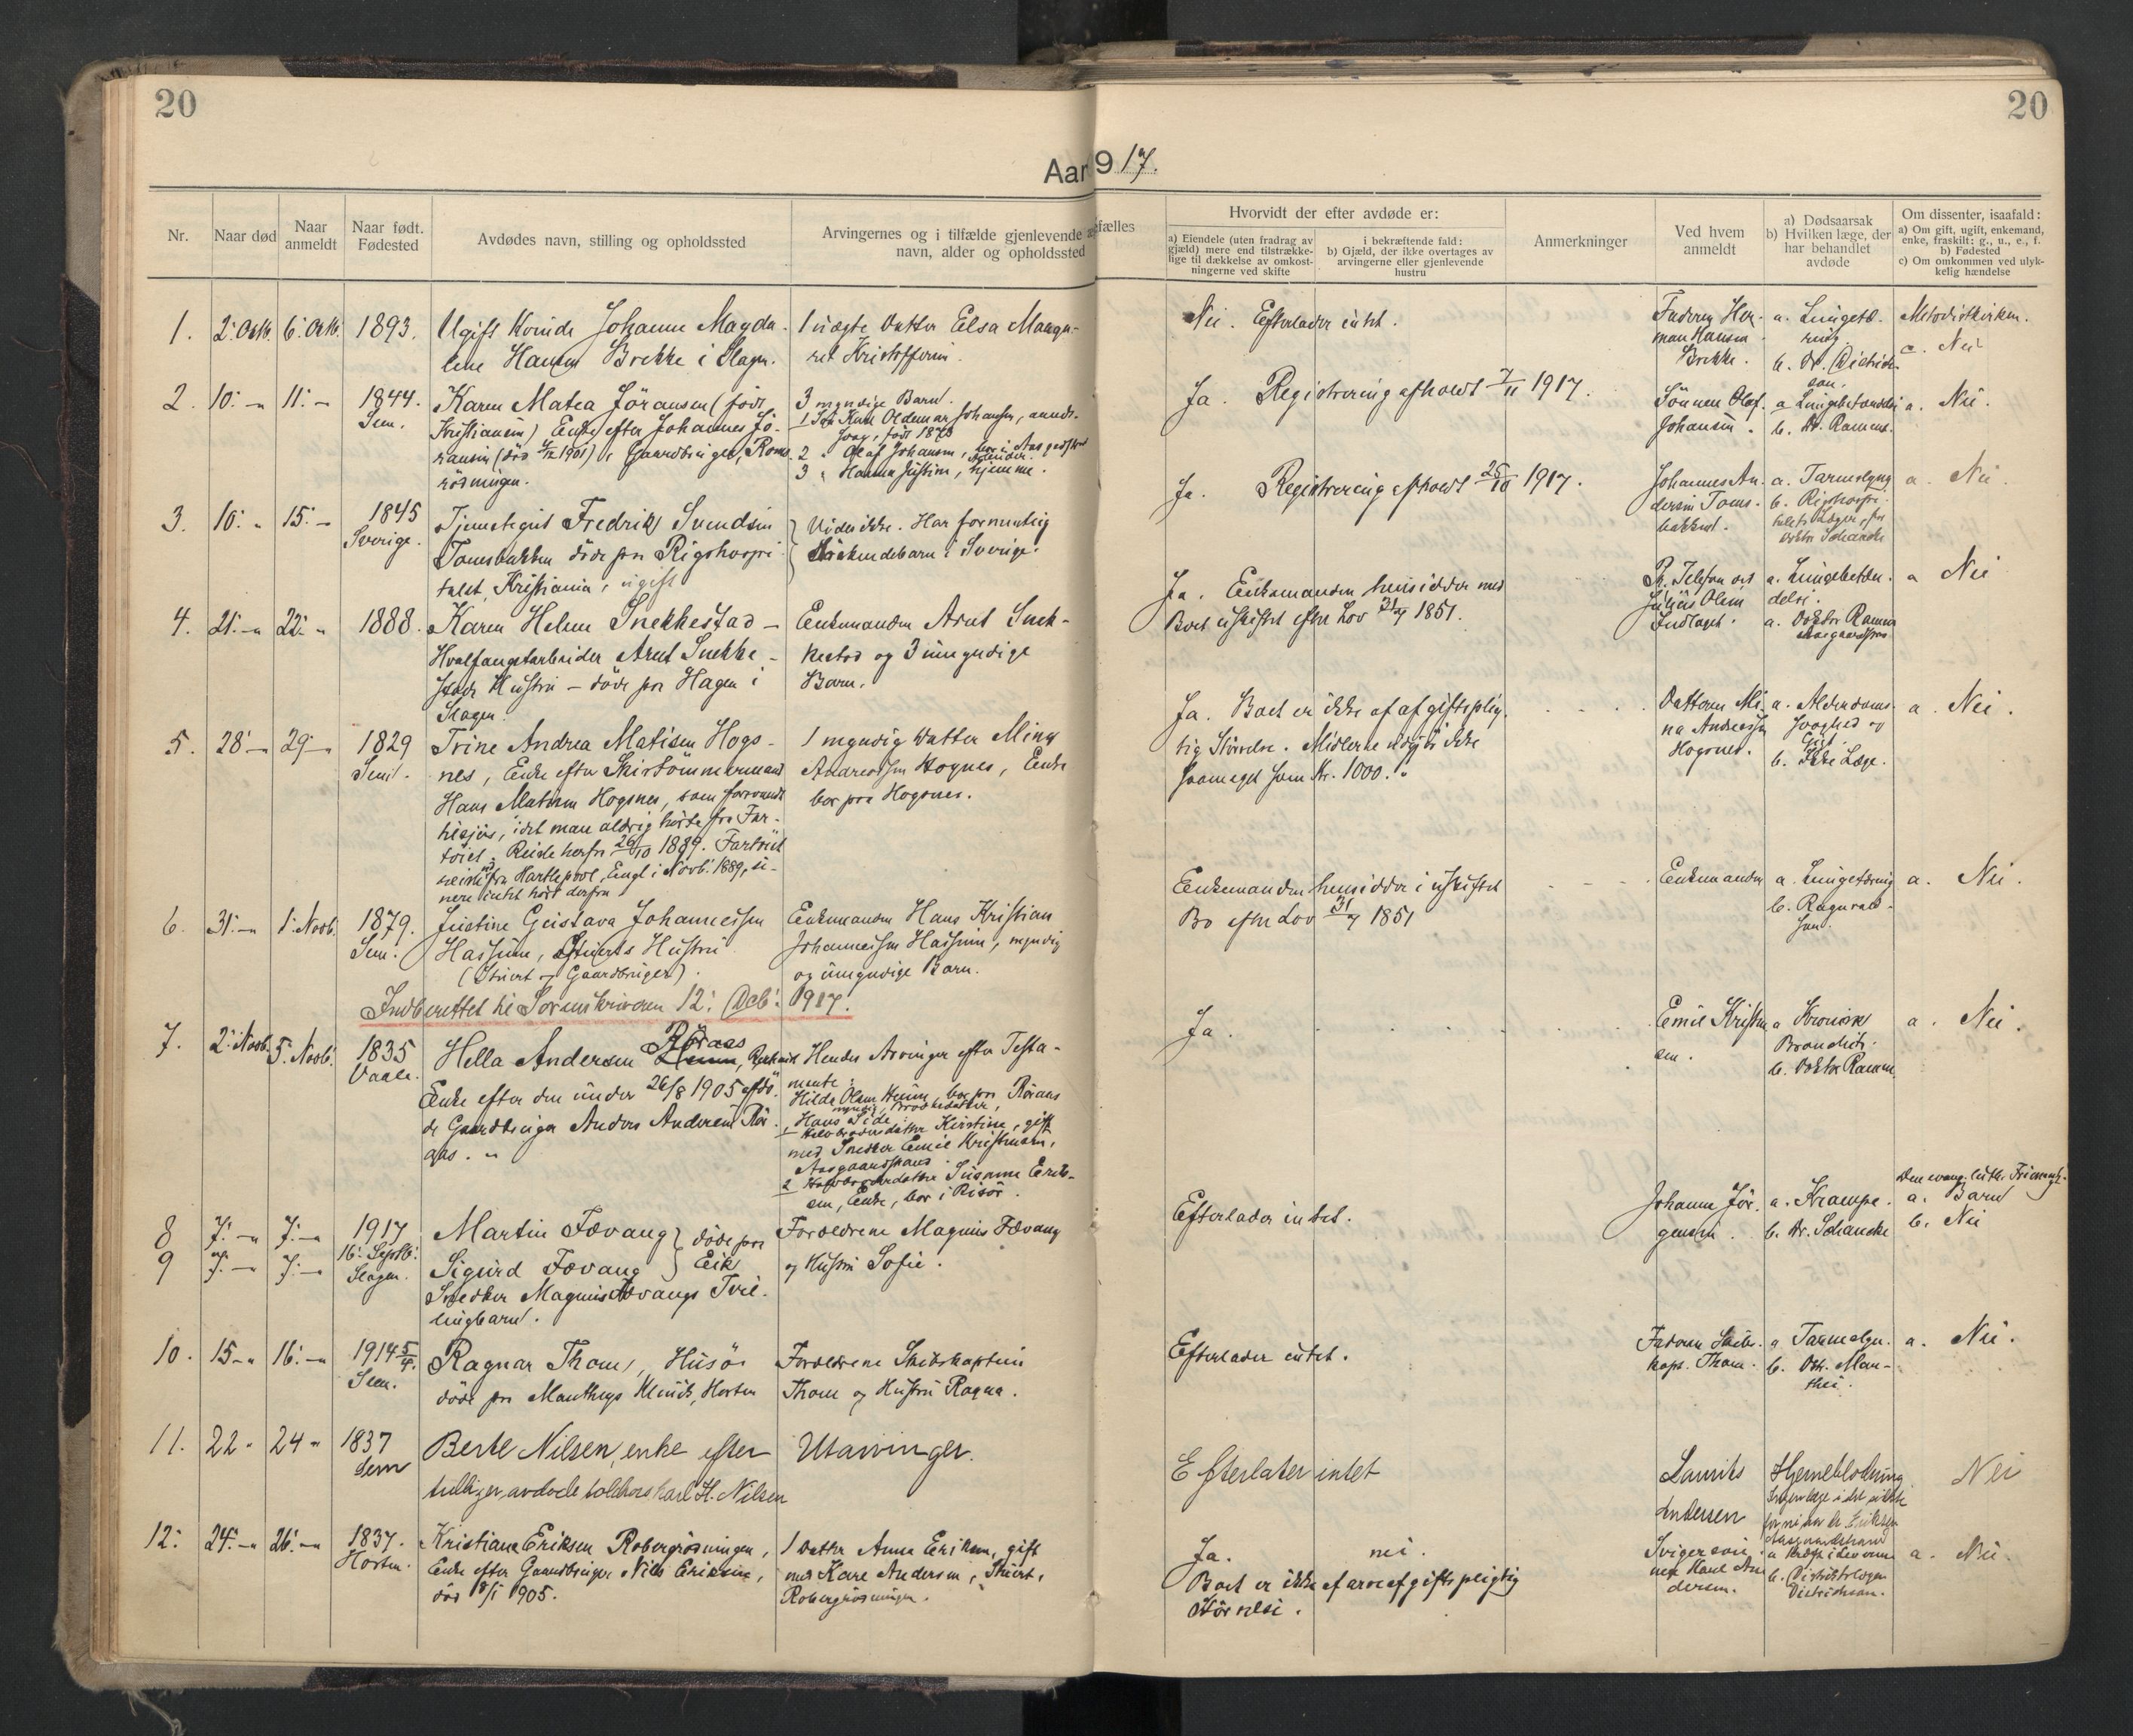 20
20
Aar 1917.
Nr.
Naar død
Naar anmeldt
Naar født. Fødested
Avdødes navn, stilling og opholdssted
Arvingernes og i tilfælde gjenlevende
navn, alder og opholdssted
fælles
Hvorvidt der efter avdøde er:
a) Eiendele (uten fradrag av
gjæld) mere end tilstrække-
lige til dækkelse av omkost-
ningerne ved skifte
i bekræftende fald:
b) Gjæld, der ikke overtages av
arvingerne eller gjenlevende
hustru
Anmerkninger
Ved hvem
anmeldt
a) Dødsaarsak
b) Hvilken læge, der
har behandlet
avdøde
Om dissenter, isaafald:
a) Om gift, ugift, enkemand,
enke, fraskilt: g., u., e., f.
b) Fødested
c) Om omkommen ved ulyk-
kelig hændelse
1. 2. Oktb. 6. Oktb. 1893. Ugift Kvinde Johanne Magda-
lene Hansen Brekke i Slagen.
1 uægte Datter Elsa Maaga-
ret Kristoffersen.
Nei. Efterlader intet.
Faderen Her-
man Hansen
Brekke.
a. Lungetæ-
ring
b. Dr. Didrich-
son.
Metodistkirken.
c. Nei
2. 10. " 11. " 1844. Sem. Karen Matea Jöransen (født
Kristiansen) Enke efter Johannes Jö-
ransen (död 1901), Gaardbruger, Rom-
rösningen.
3 myndige Barn.
1 Karl Oldemar Johansen, aands-
svag, født 1870
2 " Olaf Johansen, bor i Aasgaardstrand
3 " Hanna Justine, hjemme.
Ja. Registrering afholdt 7/11 1917.
Sönnen Olaf
Johansen.
a. Lungebetændelse
b. Dr. Ramm.
a. Nei.
3. 10. " 15. " 1845 Sverige. Tjenestegut Fredrik Svendsen
Tomsbakken döde paa Rigshospi-
talet, Kristiania, ugift
Vides ikke. Har formentlig
Söskendebarn i Sverige.
Ja. Registrering afholdt 25/10 1917.
Johannes An-
dersen Toms-
bakken.
a. Tarmslyng
b. Rigshospi-
talets Læger, fra
Doktor Schancke
a. Nei.
4. 21. " 22. " 1888. Karen Helene Snekkestad —
Hvalfangstarbeider Arnt Snekke-
stads Hustru — döde paa Hagen i
Slagen.
Enkemanden Arnt Snek-
kestad og 3 umyndige
Barn.
Ja. Enkemanden hensidder med
Boet uskiftet efter Lov 31/7 1851.
Pr. Telefon ved
Julius Olsen
a. Lungebetæn-
delse.
a. Doktor Ramm
Aasgaardstrand
a Nei
5. 28. " 29. " 1829 Sem. Trine Andrea Matisen Hogs-
nes, Enke efter Skibstömmermand
Hans Matisen Hogsnes, som forsvandt
tilsjös, idet man aldrig hörte fra Far-
töiet. Reiste herfra 26/10 1889. Fartöiet
reiste fra Hartlepool, Engl. i Novb. 1889, si-
nere intet hört derfra
1 myndig Datter Mina
Andreassen Hogsnes, Enke
bor paa Hogsnes.
Ja. Boet er ikke af afgiftsplig-
tig Störrelse. Midlerne udgjör ikke
saameget som Kr. 1000.
Datteren Mi-
na Andreassen
Hogsnes.
a. Alderdoms-
svaghed og
Gigt.
b. Ikke Læge.
a. Nei.
6. 31. " 1. Novb. 1879. Sem. Justine Gustava Johannessen
Hassum, Stuerts Hustru
(Stuert og Gaardbruger).
Enkemanden Hans Kristian
Johannessen Hassum, myndig
og umyndige Barn.
Enkemanden hensidder i uskiftet
Bo efter Lov 31/7 1851
Enkemanden
a. Lungetæring
b. Ragnvald-
sen.
a. Nei.
Indberettet til Sorenskriveren 12. Decb. 1917.
7. 2. Novb. 5. Novb. 1835 Vaale. Hella Andersen Röraas
Enke efter den under 26/8 1905 afdö-
de Gaardbruger Anders Andersen Rör-
aas.
Hendes Arvinger efter Testa-
mente:
Hilda Olsen, bor paa Röraas
myndig, Broderdatter,
Hans Side
1 Halvbroderdatter Kirstine, gift
med Snedker Emil Kristensen,
Aasgaardstrand
2 Halvbroderdatter Susanne Erik-
sen, Enke, bor i Risör.
Ja.
Emil Kristen-
sen.
a Kronisk
Bronchit.
b. Doktor Ramm.
a. Nei.
8 7. " 7. " 1917
9 7. " 7. " 16. Septb. Slagen.
Martin Fævang
Sigurd Fævang } döde paa Eik
Snedker Magnus Fævangs Tvil-
lingbarn.
Forældrene Magnus Fævang
og Hustru Sofie.
Efterlader intet.
Johanne Jör-
gensen.
a. Krampe.
b. Dr. Schancke
Den evang. luth. Frimenigh.
a. Barn
b. Nei
10. 15 " 16. " 1914 5/4. Sem. Ragnar Thom, Husö
döde paa Mantheys Klinik, Horten
Forældrene Skibskaptein
Thom og Hustru Ragna.
Efterlader intet.
Faderen Skibs-
kapt. Thom.
a Tarmslyn.
b. Dr. Man-
they.
a. Nei.
11. 22 " 24 " 1837 Sem Berte Nilsen, enke efter
tidligere avdøde H. Nilsen
Utarvinger.
Efterlater intet
Laurits
Andersen
Hjerneblødning
Ingen læge i det sidste
Nei
12. 24. " 26. " 1837. Horten. Kristiane Eriksen Robergrösningen,
Enke efter Gaardbruger Nils Eriksen,
död 8/1 1905.
1 Datter Anna Eriksen, gift
med Kare Andersen, Stuert,
Robergrösningen.
Ja. nei.
Boet er ikke af arveafgiftspligtig
Störrelse.
Svigersön-
nen Karl An-
dersen.
Aasgaardstrand
a Kræft i Leveren
b. Distriktslægen
Didrichson.
a. Nei.